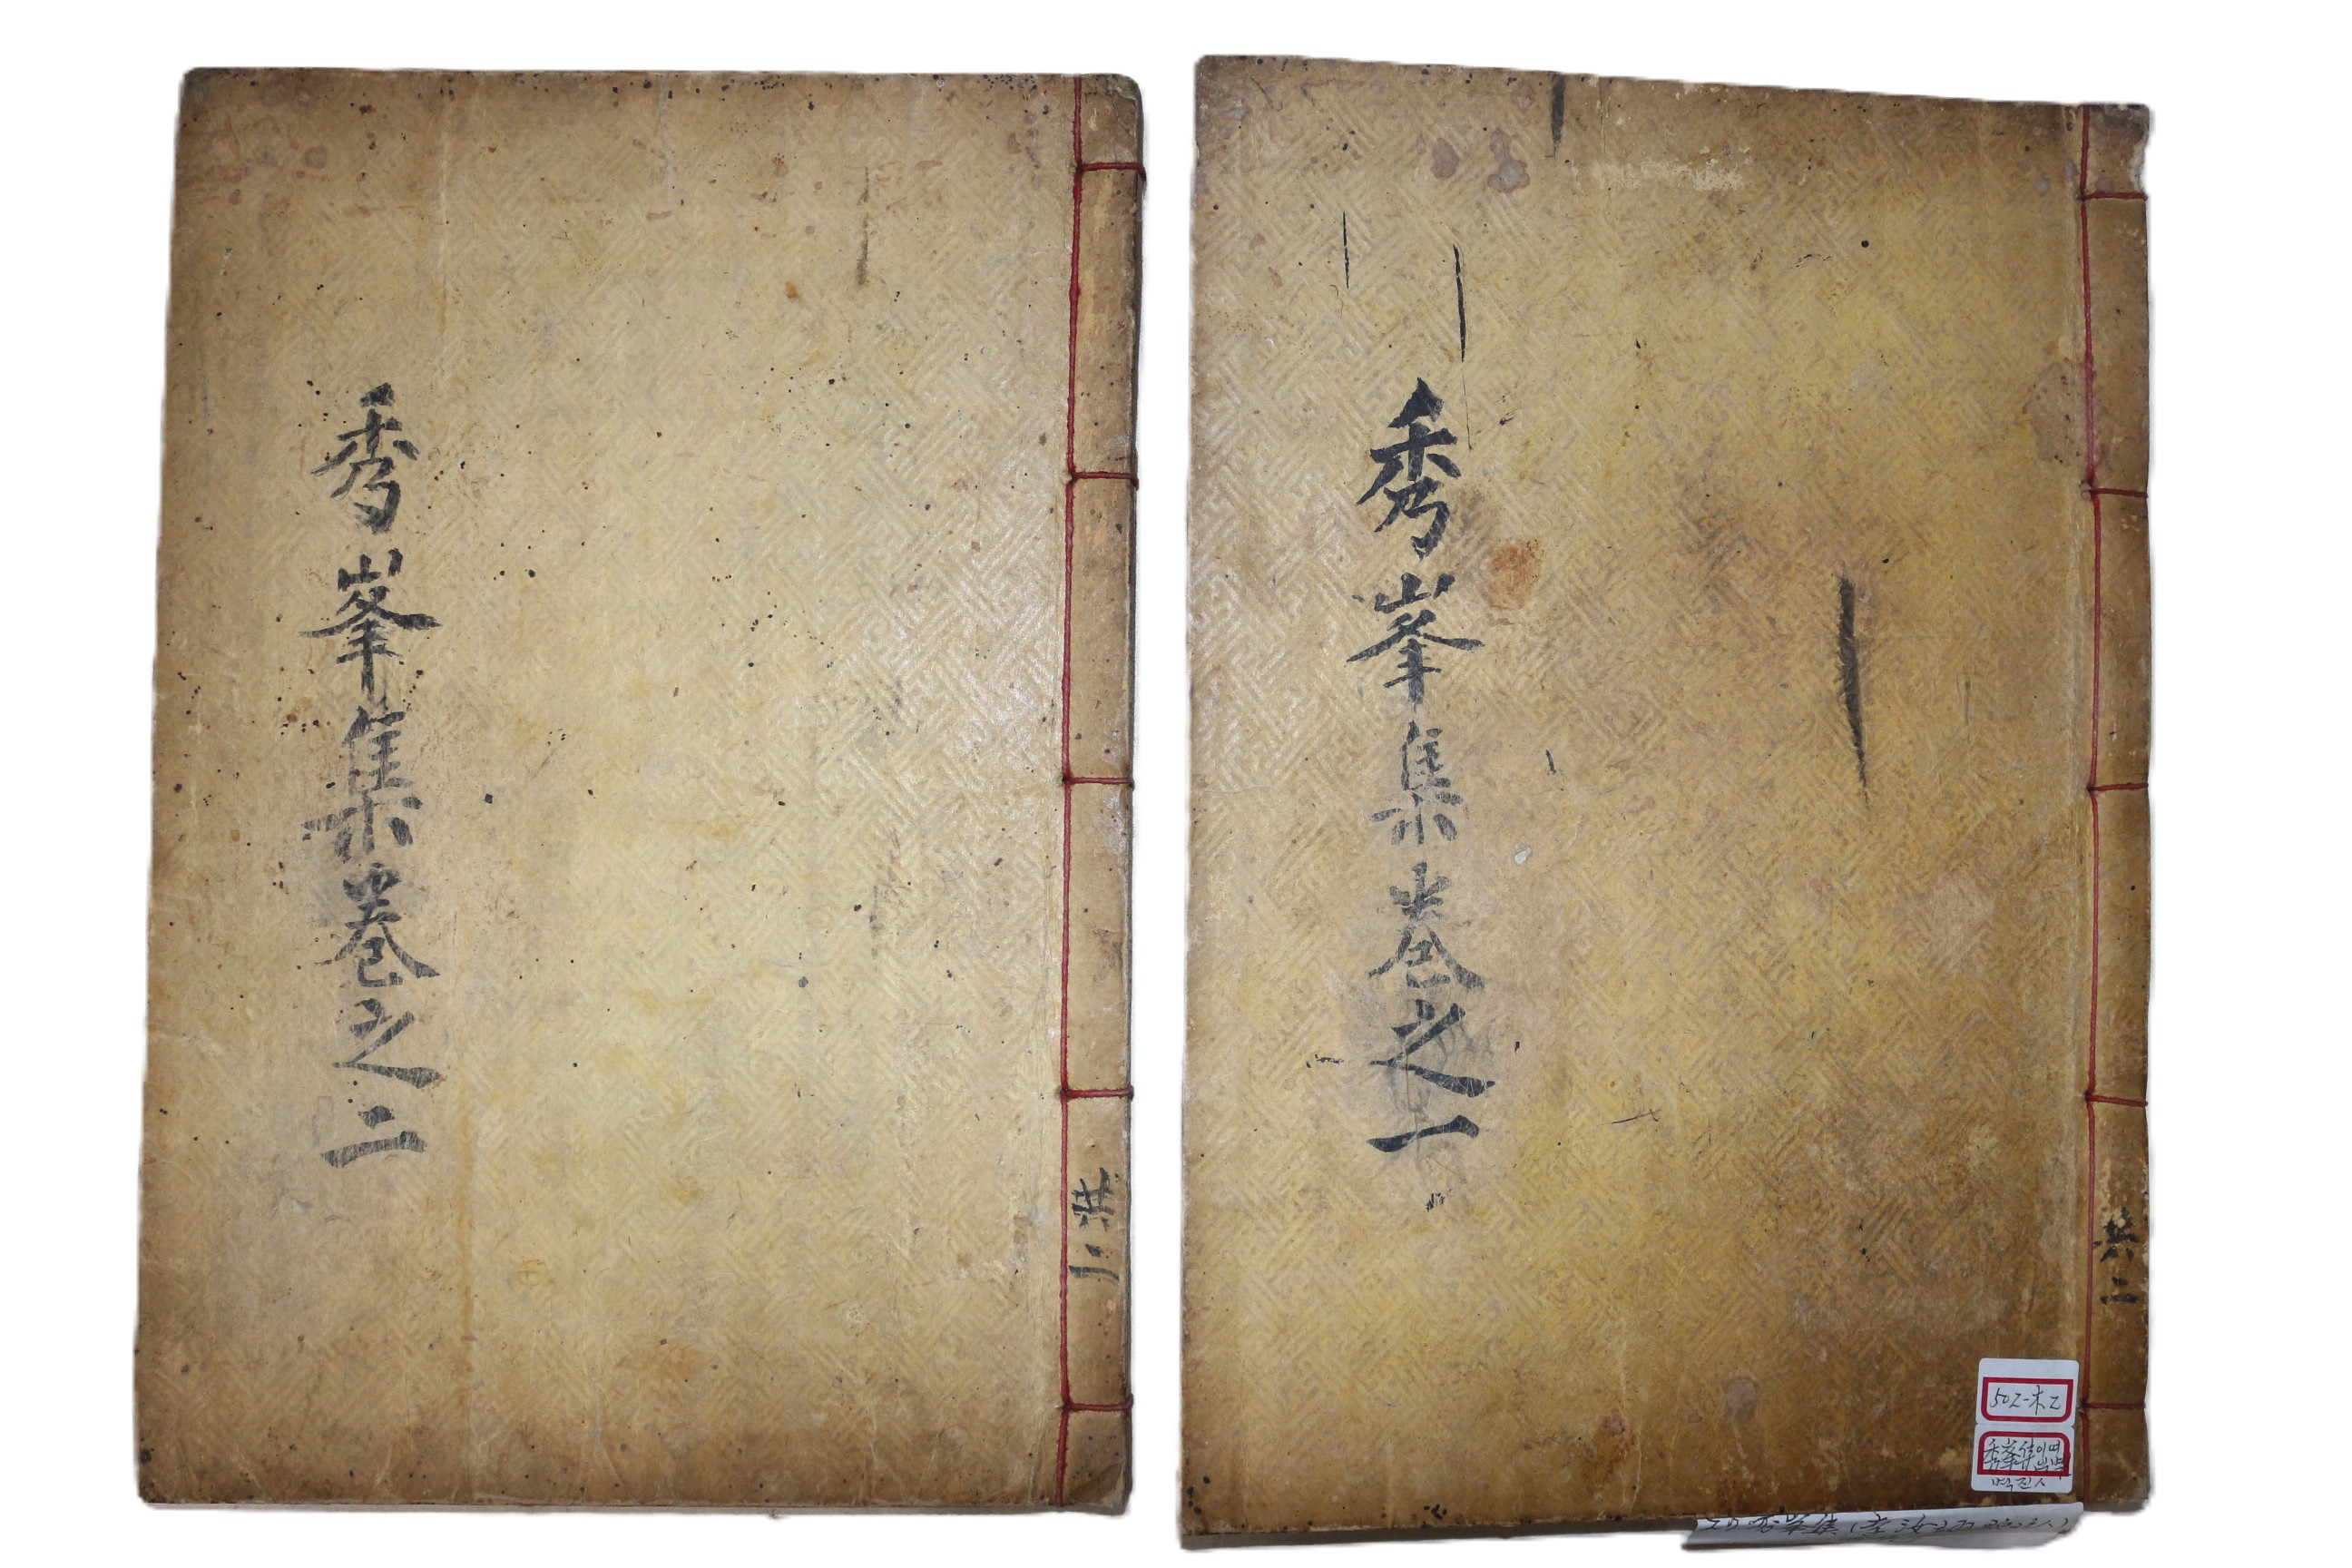 秀峯集卷之二
共二
秀峯集卷之一
共二
502-木2
秀峯集